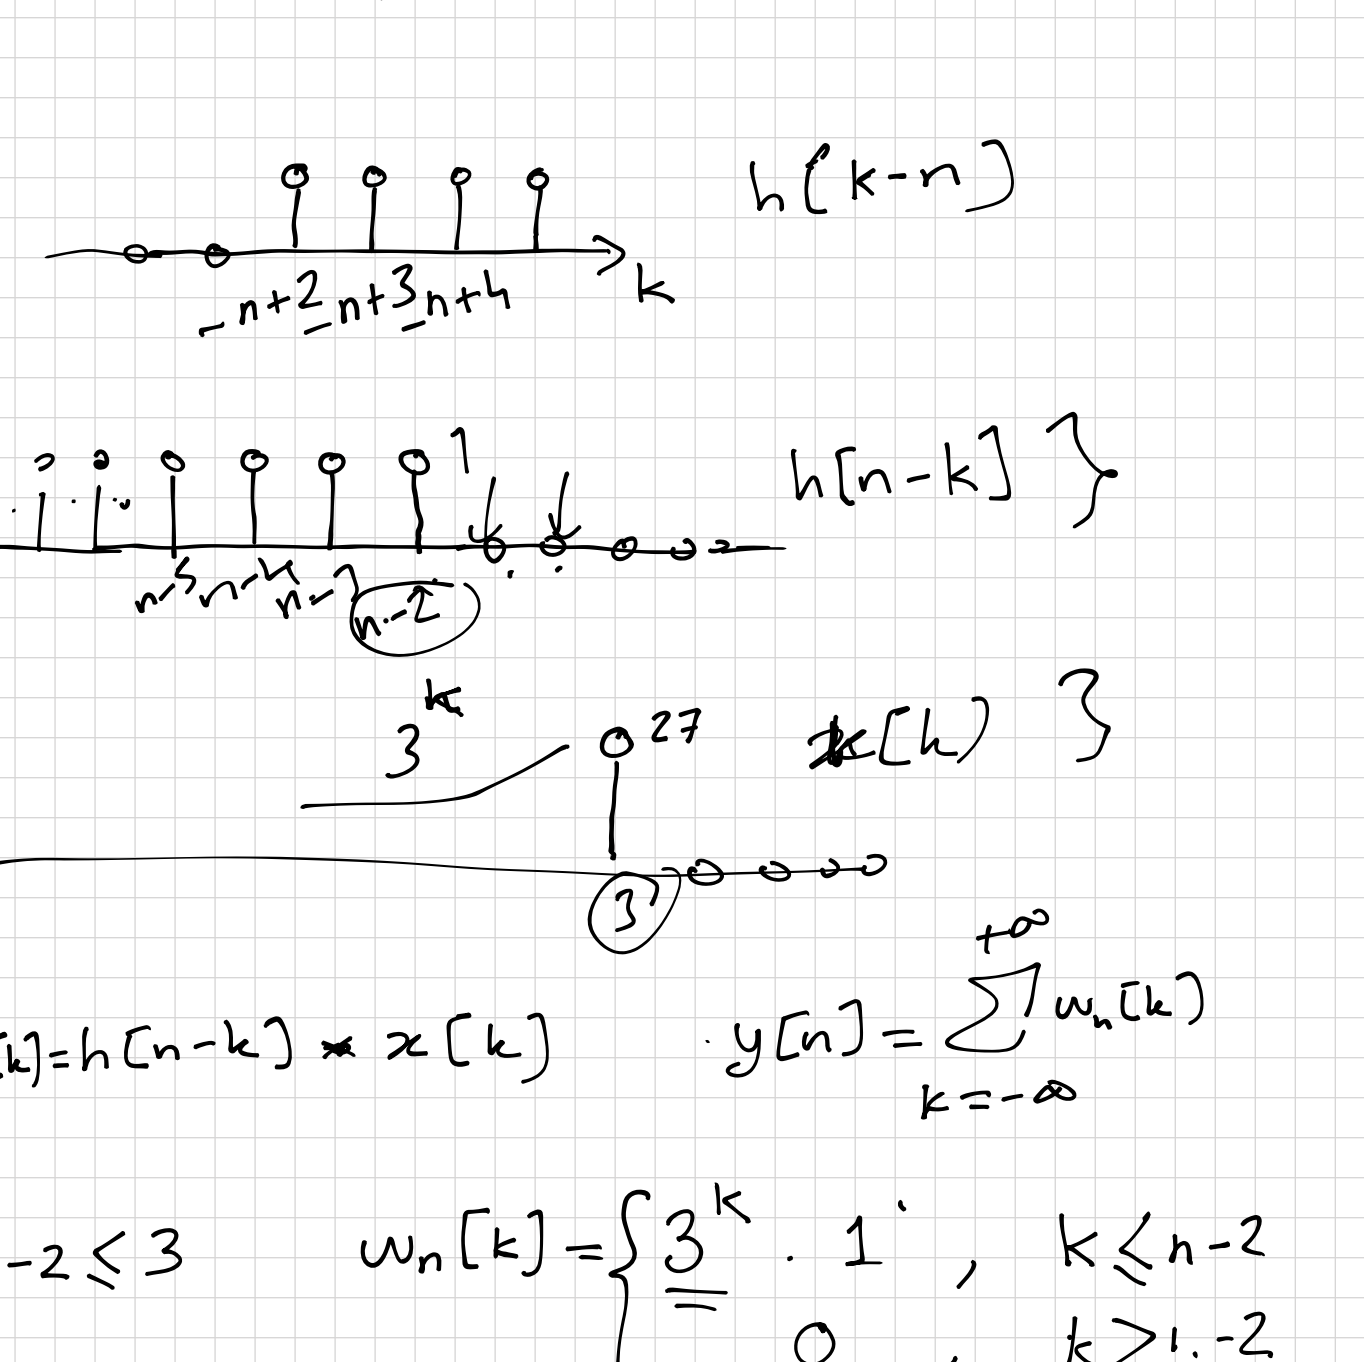 h[k-n]
n+2 n+3 n+4 k
1
h[n-k] }
n-5 n-4 n-3 n-2
3^k
27
x[k] }
3
[k]=h[n-k] * x[k]
y[n] = \sum_{k=-∞}^{+∞} w_n[k]
-2 ≤ 3
w_n[k] = { 3^k . 1 , k ≤ n-2
0 , k > n-2